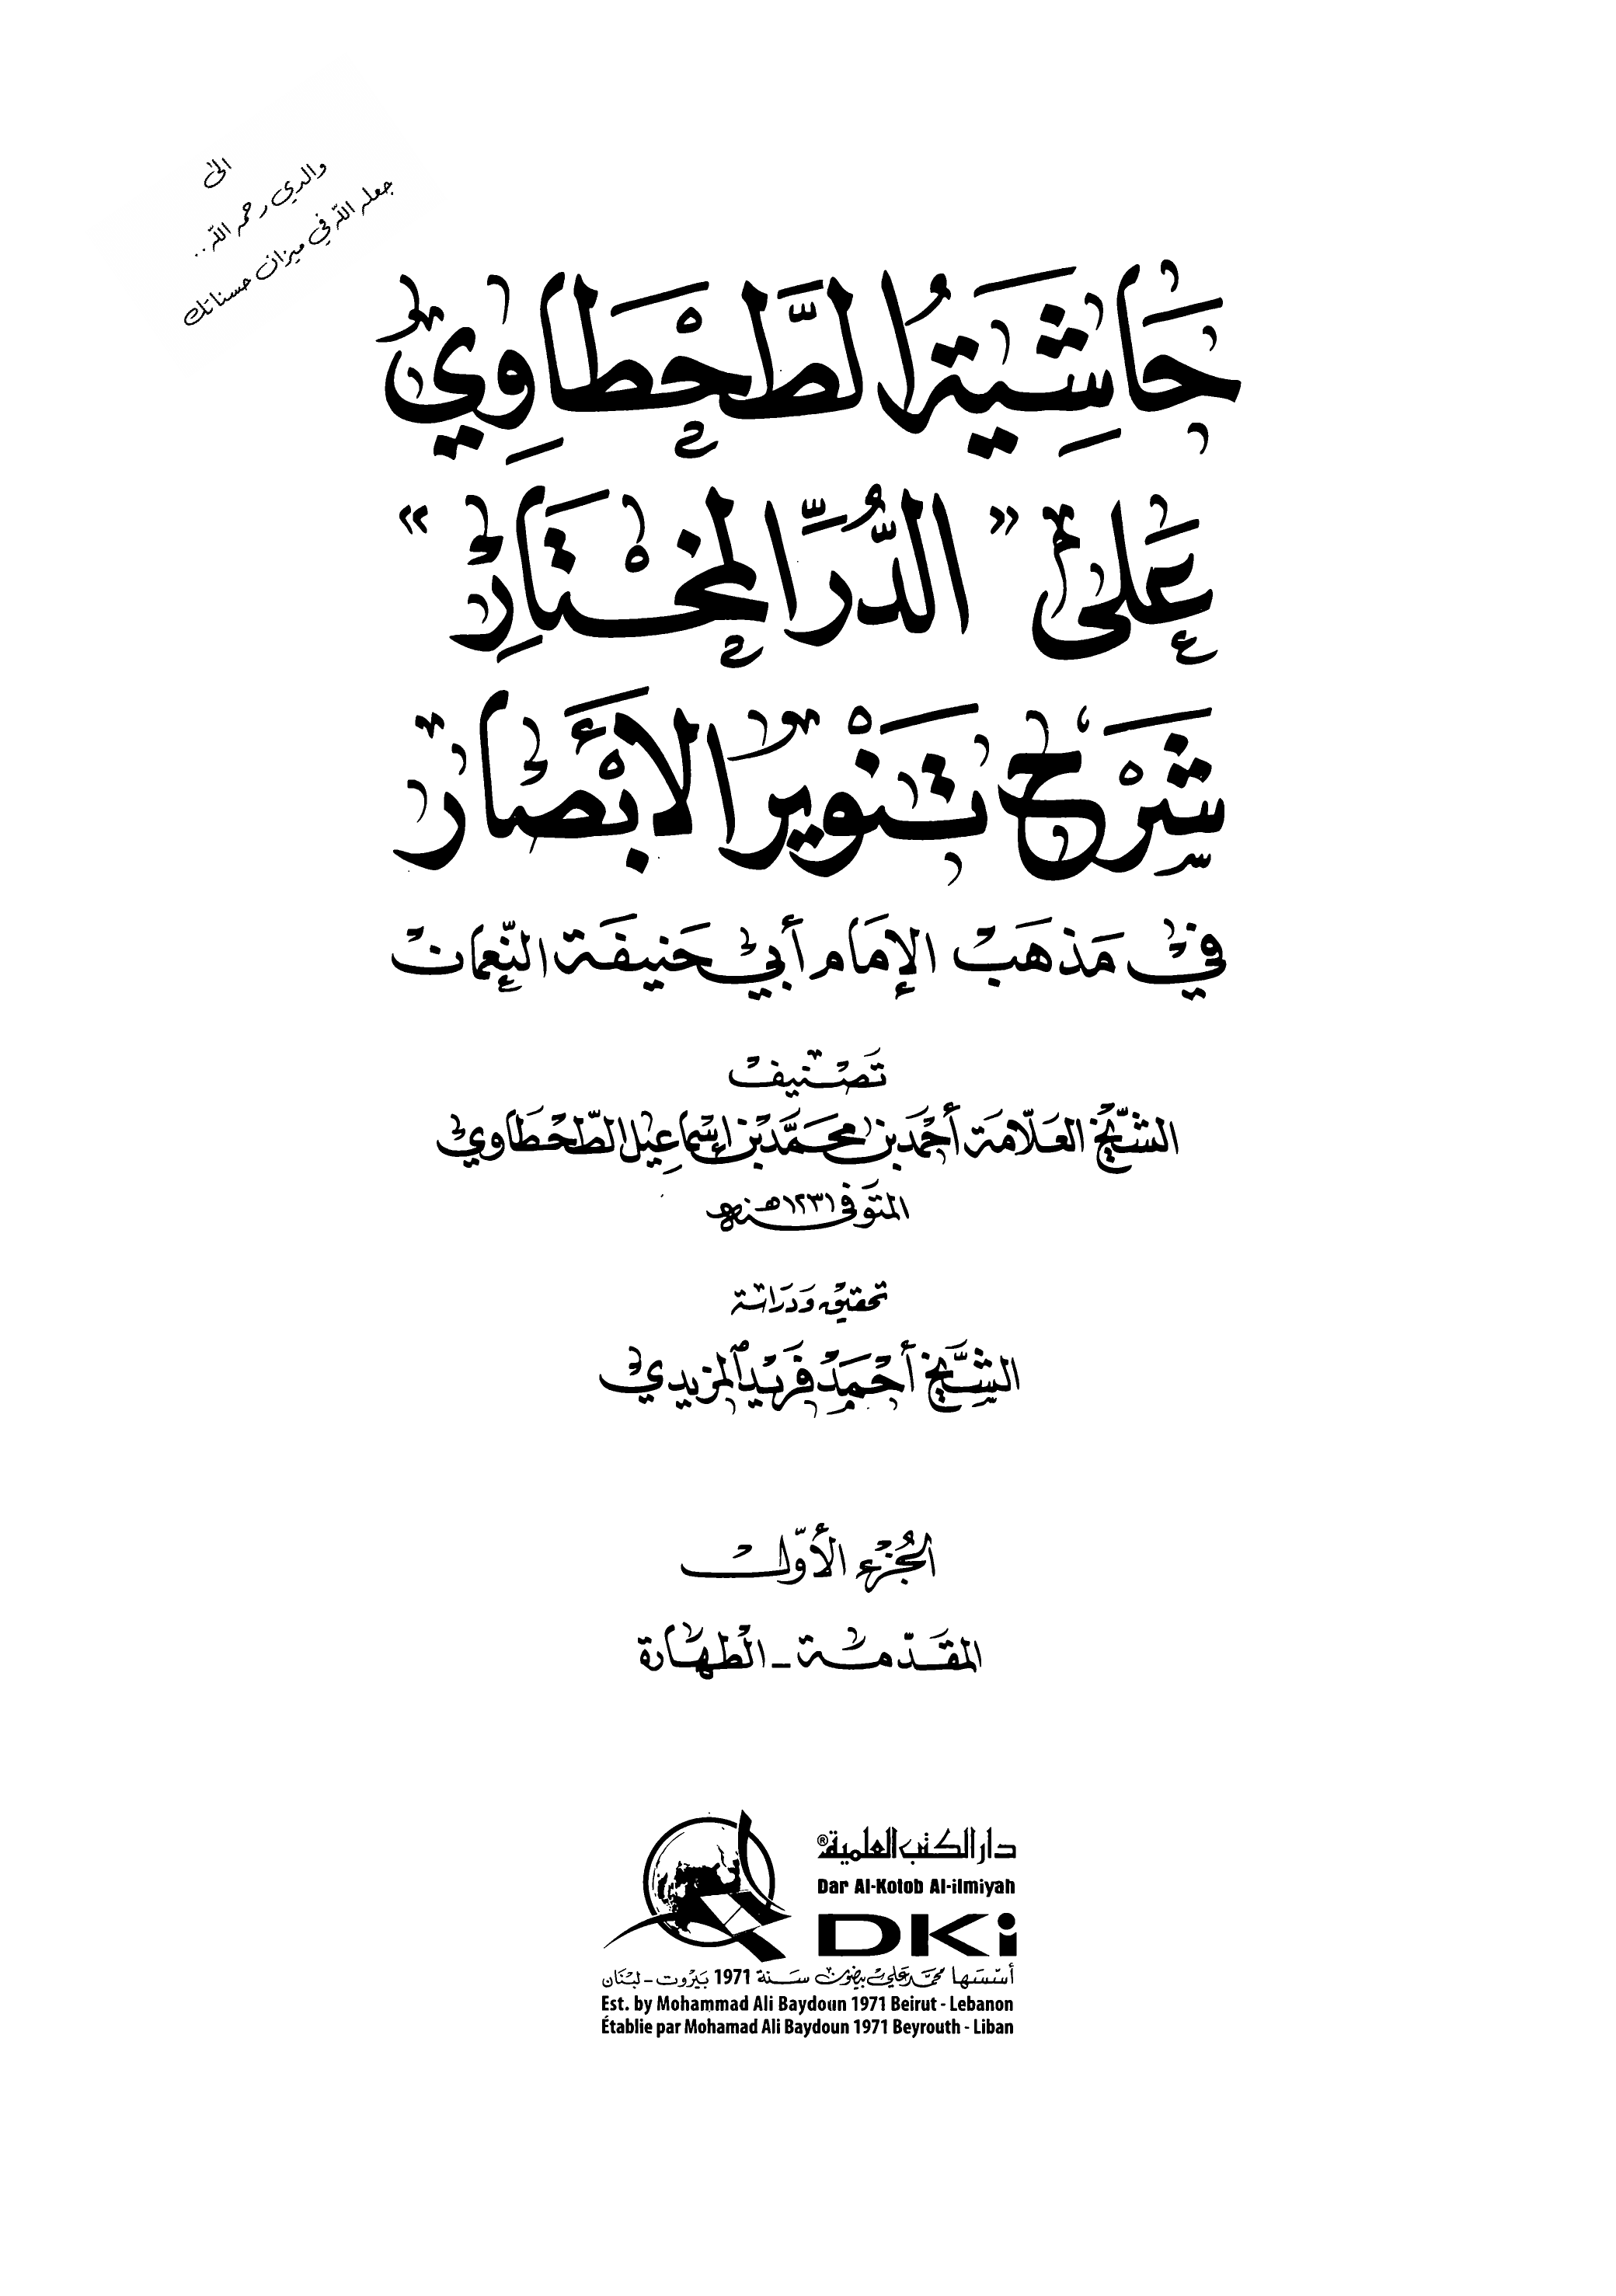 الى
والدي رحمه الله..
جعله الله في ميزان حسناتك
حَاشِيَةُ الطَّحْطَاوِيِّ
عَلَى "الدُّرِّ المُخْتَارِ"
شَرْحِ تَنْوِيرِ الأَبْصَارِ
في مَذهَبِ الإمَام أبي حَنيفَة النّعمان
تَصْنيف
الشّيخ العَلّامَة أحْمَد بن محَمَّد بْن إسْمَاعِيل الطّحْطَاوي
المتوَفى سنة ١٢٣١هـ
تحقيق وَدرَاسَة
الشّيخ أحْمَد فَرِيْد المزيدي
الجُزء الأوّل
المقَدّمة - الطهَارة
دار الكتب العلمية®
Dar Al-Kotob Al-ilmiyah
DKi
أسّسَها محمّد عَلي بيضون سَنة 1971 بَيْروت - لبْنَان
Est. by Mohammad Ali Baydoun 1971 Beirut - Lebanon
Établie par Mohamad Ali Baydoun 1971 Beyrouth - Liban